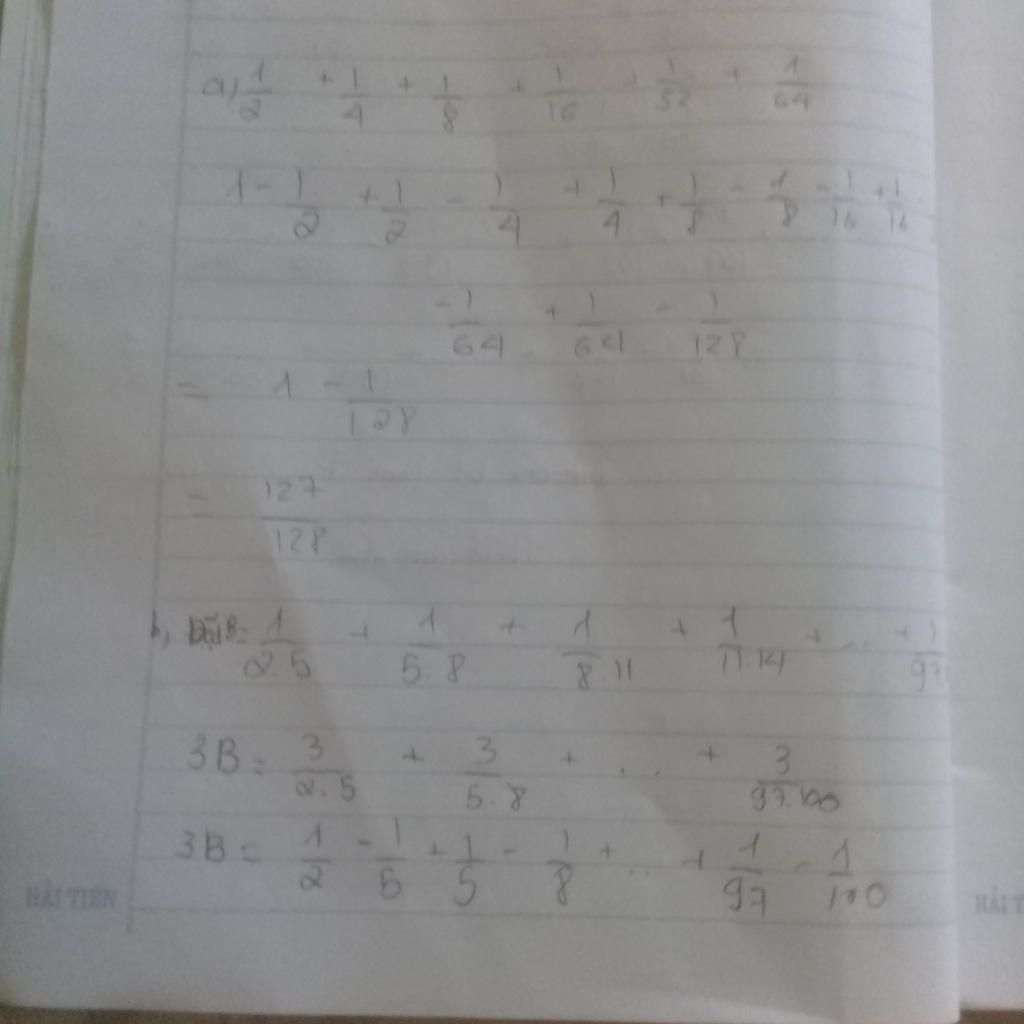 a) 1/2 + 1/4 + 1/8 + 1/16 + 1/32 + 1/64
1 - 1/2 + 1/2 - 1/4 + 1/4 + 1/8 - 1/8 - 1/16 + 1/16
- 1/64 + 1/64 - 1/128
= 1 - 1/128
= 127/128
b, Đặt B = 1/2.5 + 1/5.8 + 1/8.11 + 1/11.14 + ... + 1/97
3B = 3/2.5 + 3/5.8 + ... + 3/97.100
3B = 1/2 - 1/5 + 1/5 - 1/8 + ... + 1/97 - 1/100
HẢI TIẾN
HẢI T